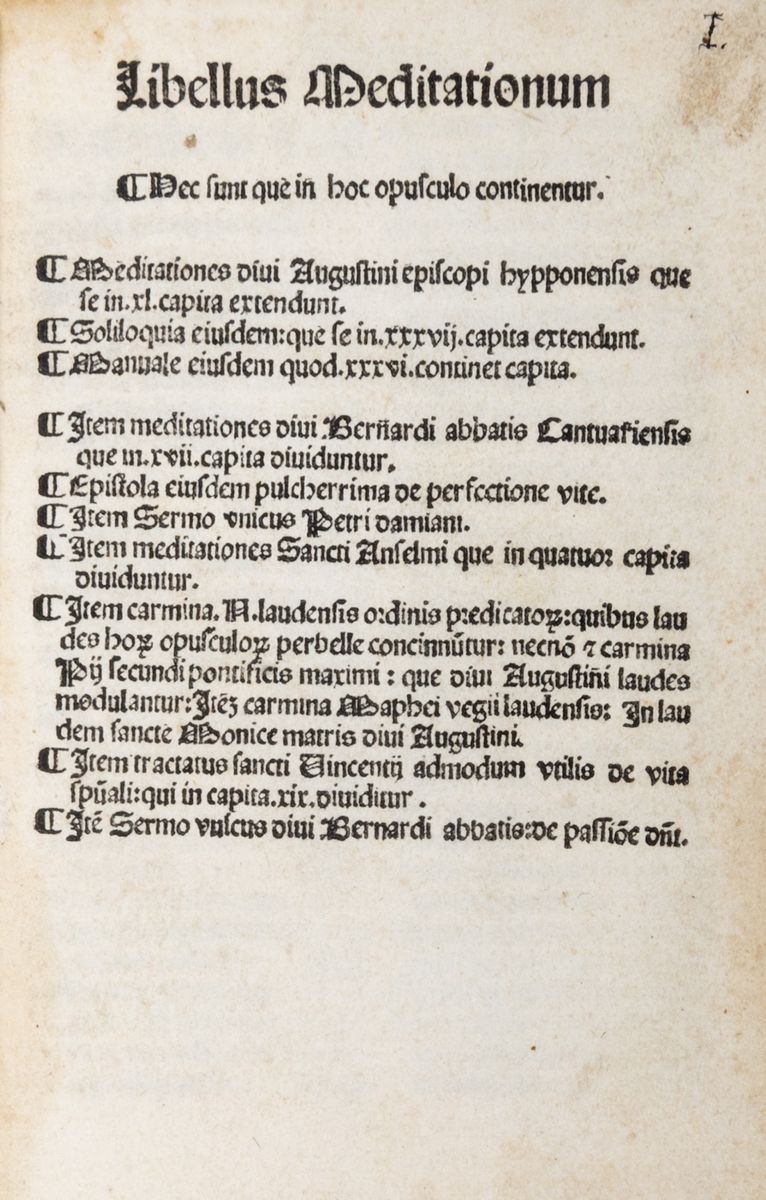 I.
Libellus Meditationum
¶ Hec sunt que in hoc opusculo continentur.
¶ Meditationes diui Augustini episcopi hypponensis que
se in .xl. capita extendunt.
¶ Soliloquia eiusdem: que se in .xxxvij. capita extendunt.
¶ Manuale eiusdem quod .xxxvi. continet capita.
¶ Item meditationes diui Bernardi abbatis Cantuariensis
que in .xvii. capita diuiduntur.
¶ Epistola eiusdem pulcherrima de perfectione vite.
¶ Item Sermo vnicus Petri damiani.
¶ Item meditationes Sancti Anselmi que in quatuor capita
diuiduntur.
¶ Item carmina .N. laudensis ordinis predicatoꝝ: quibus lau
des hoꝝ opusculoꝝ perbelle concinnūtur: necnō ⁊ carmina
Pij secundi pontificis maximi: que diui Augustini laudes
modulantur: Itēꝫ carmina Maphei vegii laudensis: In lau
dem sancte Monice matris diui Augustini.
¶ Item tractatus sancti Vincentij admodum vtilis de vita
spūali: qui in capita .xix. diuiditur.
¶ Itē Sermo vulcus diui Bernardi abbatis: de passiōe dn̄i.